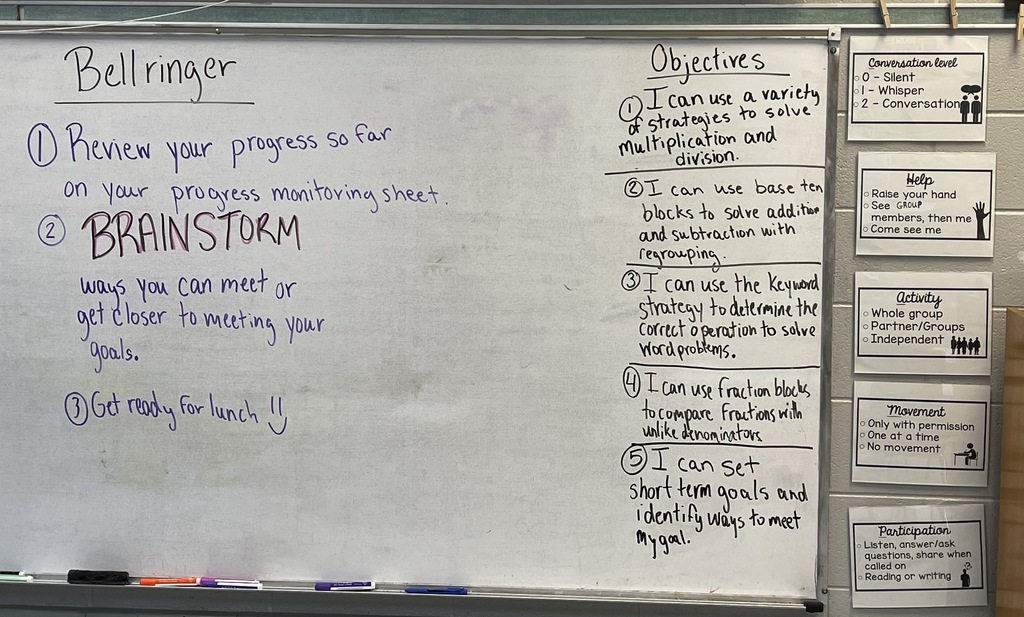 Bellringer
① Review your progress so far
on your progress monitoring sheet.
② BRAINSTORM
ways you can meet or
get closer to meeting your
goals.
③ Get ready for lunch !!
Objectives
① I can use a variety
of strategies to solve
multiplication and
division.
② I can use base ten
blocks to solve addition
and subtraction with
regrouping.
③ I can use the keyword
strategy to determine the
correct operation to solve
word problems.
④ I can use fraction blocks
to compare fractions with
unlike denominators
⑤ I can set
short term goals and
identify ways to meet
my goal.
Conversation level
0 - Silent
1 - Whisper
2 - Conversation
Help
Raise your hand
See GROUP
members, then me
Come see me
Activity
Whole group
Partner/Groups
Independent
Movement
Only with permission
One at a time
No movement
Participation
Listen, answer/ask
questions, share when
called on
Reading or writing